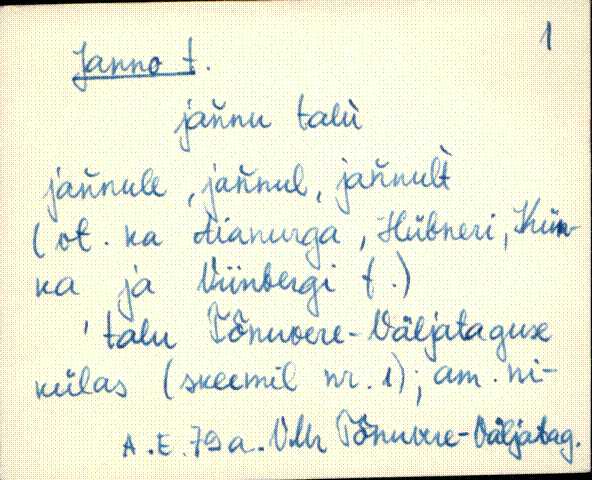 1
Janno t.
jaňnu talù
jaňnule, jaňnul, jaňnult̀
(vt. ka Aianurga, Hübneri, Kün-
ka ja Viinbergi t.)
talu Tõnuvere-Väljataguse
külas (skeemil nr. 1); am. ni-
A.E. 79a. VMr Tõnuvere-Väljatag.